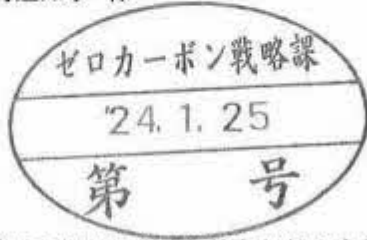 ゼロカーボン戦略課
'24. 1. 25
第 号